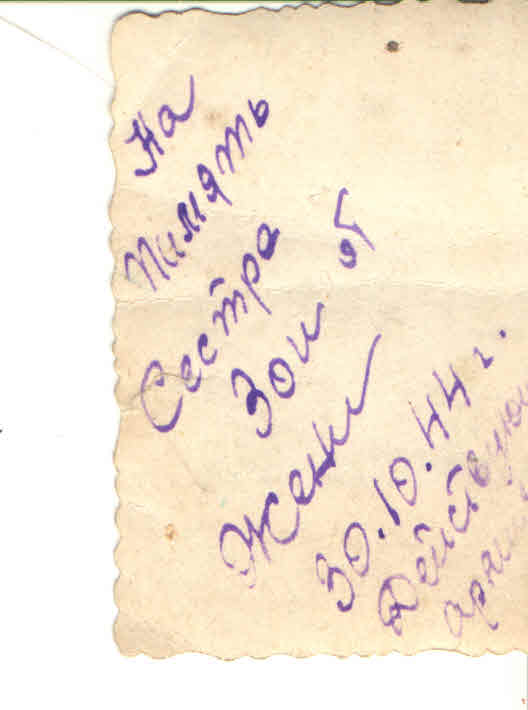 На
память
Сестра
Зои от
Жени
30.10.44 г.
Действую
арми